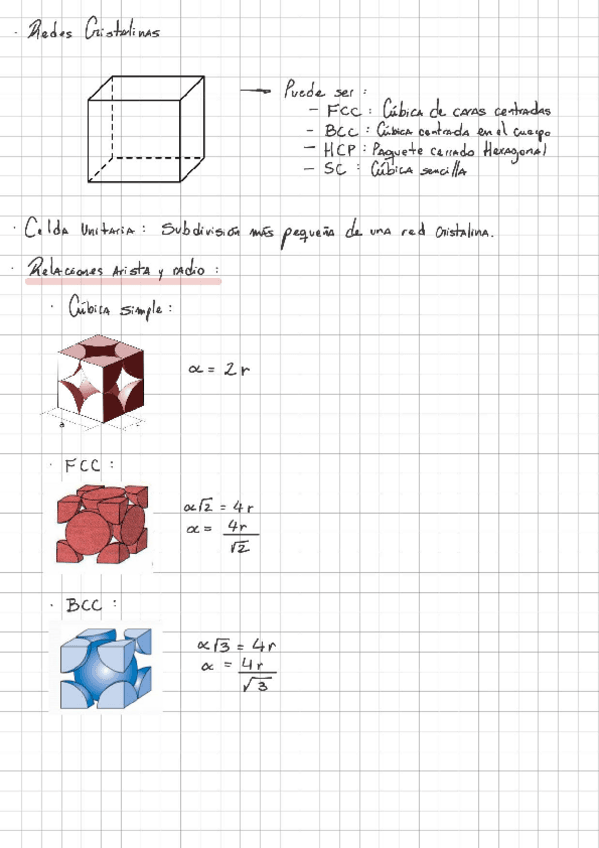 · Redes Cristalinas
→ Puede ser :
– FCC : Cúbica de caras centradas
– BCC : Cúbica centrada en el cuerpo
– HCP : Paquete cerrado Hexagonal
– SC : Cúbica sencilla
· Celda Unitaria : Subdivisión más pequeña de una red cristalina.
· Relaciones Arista y radio :
· Cúbica simple :
α = 2r
a
· FCC :
α√2 = 4r
α = 4r/√2
· BCC :
α√3 = 4r
α = 4r/√3